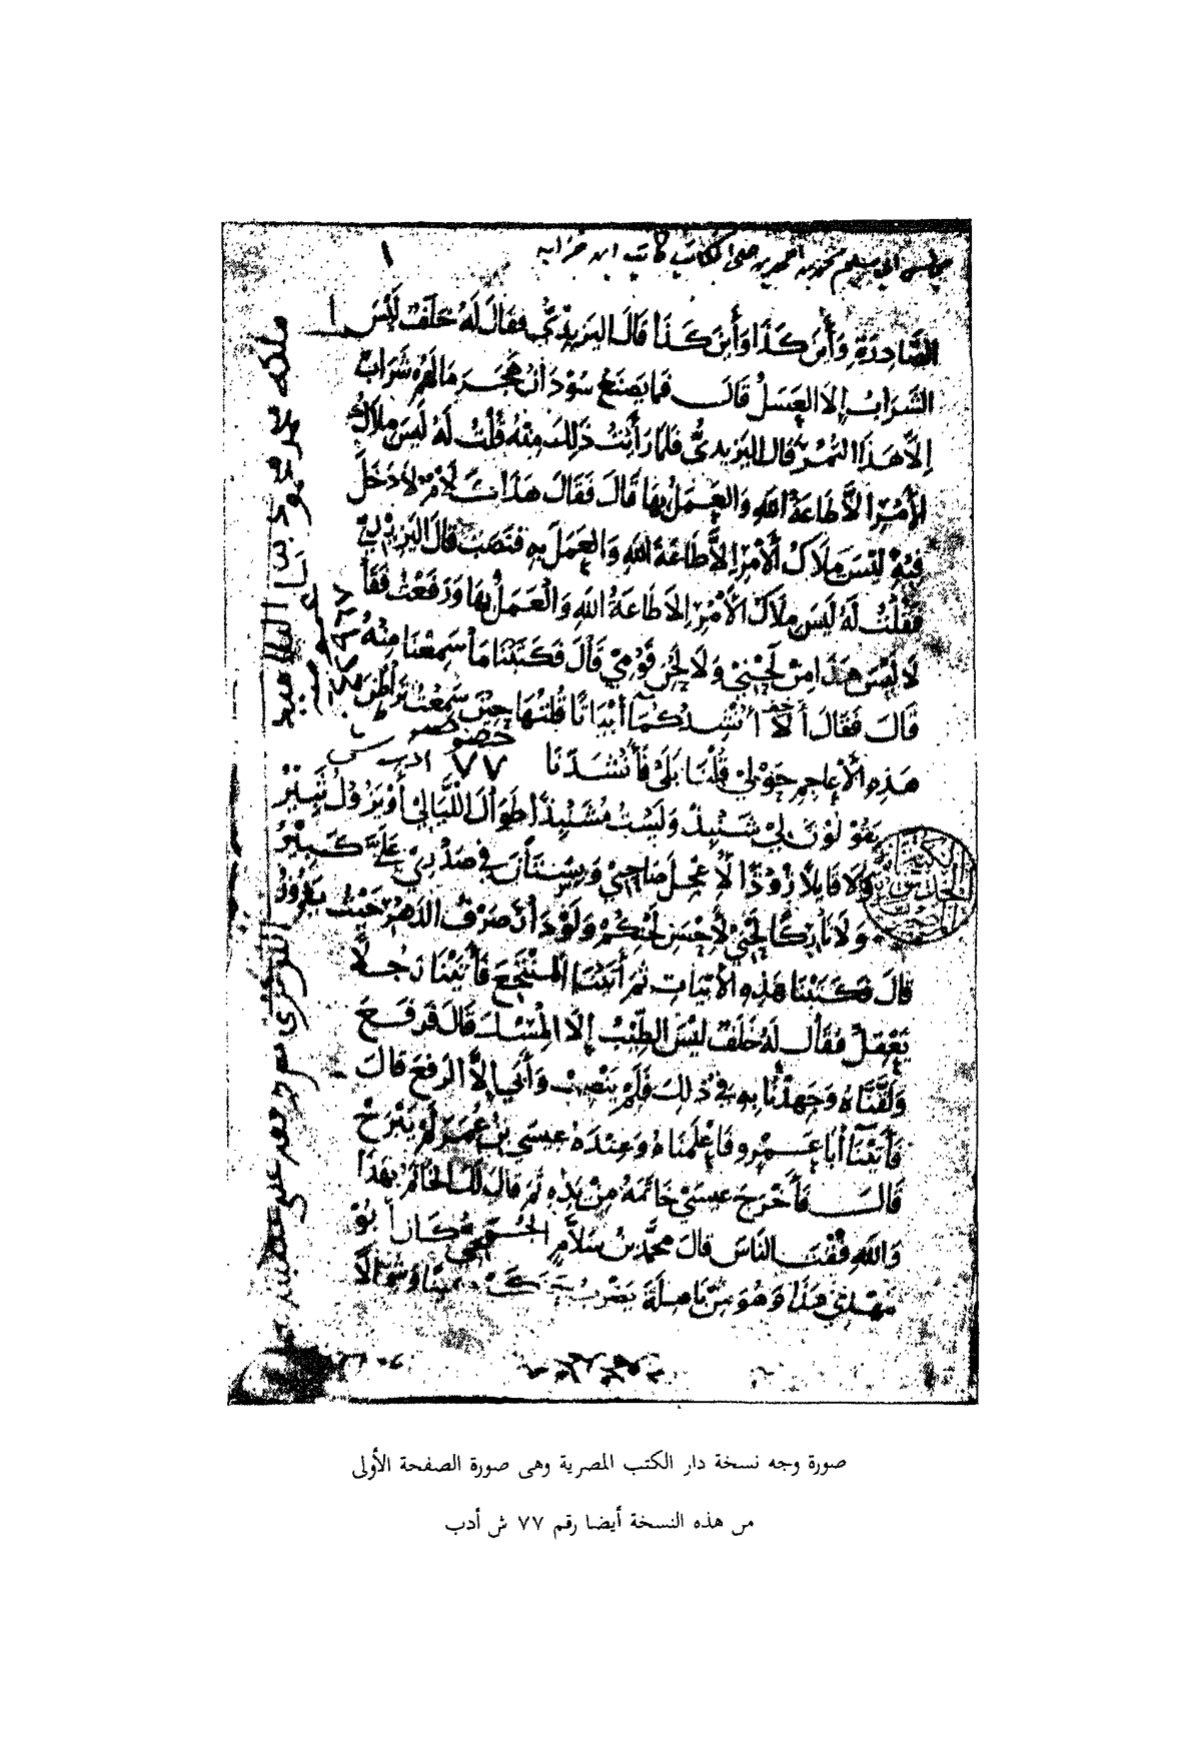 مجلس ابى مسلم محمد بن احمد بن على الكاتب كاتب ابن حنزابه
١
الصَّادِرَةِ وَأَينَ كَذَا وَأَينَ كَذَا قَالَ اليَزِيْدِيُّ فقَالَ لَهُ خَلَفٌ لَيْسَ
الشَّرَابُ إِلا العَسَلُ قَالَ فَمَا يَصْنَعُ سُوْدَانُ هَجَرَ مَا لَهُمْ شَرَابٌ
إِلَّا هَذَا التَّمْرُ قَالَ اليَزِيدِيُّ فَلمَّا رَأَيْتُ ذَلِكَ مِنْهُ قُلْتُ لَهُ لَيْسَ مِلَاكُ
الأَمْرِ الَّا طَاعَةُ اللهِ وَالعَمَلُ بِهَا قَالَ فَقَالَ هَذَا لَا دَخَلَ
فِيْهِ لَيْسَ مِلَاكُ الأَمْرِ إِلَّا طَاعَةَ اللهِ وَالعَمَلَ بِهِ فنَصَبَ قَالَ اليَزِيْدِيُّ
فَقُلْتُ لَهُ لَيْسَ مِلَاكُ الأَمْرِ إِلَّا طَاعَةُ اللهِ وَالْعَمَلُ بِهَا وَرَفَعْتُ فَقَالَ
لَا لَيْسَ هَذَا مِنْ لَحْنِيْ وَلَا لَحْنِ قَوْمِيْ قَالَ فَكَتَبْنَا مَا سَمِعْنَا مِنْهُ
قَالَ فَقَالَ أَلا أُنْشِدُكُمَا أَبْيَاتًا قُلتُهَا حِيْنَ سَمِعْتُ تَرَاطُنَ
هَذِهِ الأَعَاجِمِ حَوْلِيْ قُلْنَا بَلَى فَأَنْشَدَنَا
خصوصية
٧٧ ادب ش
يَقُوْلُوْنَ لِيْ شَنْبِذْ وَلَسْتُ مُشَنْبِذًا طَوَالَ اللَّيَالِيْ أَوْ يَزُوْلَ ثَبِيْرُ
وَلَا قَائِلًا زُوْذًا لِأُعْجِلَ صَاحِبِيْ وَبِسْتَانُ فِيْ صَدْرِيْ عَلَيَّ كَبِيْرُ
وَلَا تَارِكًا لَحْنِيْ لِأُحْسِنَ لَحْنَكُمْ وَلَوْ دَارَ صَرْفُ الدَّهْرِ حَيْثُ يَدُوْرُ
قَالَ فَكَتَبْنَا هَذِهِ الأَبْيَاتِ ثُمَّ أَتَيْنَا الْمُنْتَجِعَ فَأَتَيْنَا رَجُلًا
يَعْقِلُ فَقَالَ لَهُ خَلَفٌ لَيْسَ الطِّيْبُ إِلَّا الْمِسْكَ قَالَ فَرَفَعَ
وَلَقَّنَّاهُ وَجَهِدْنَا بِهِ فِيْ ذَلِكَ فَلَمْ يَنْصِبْ وَأَبَى إِلَّا الرَّفْعَ قَالَ
فَأَتَيْنَا أَبَا عَمْرٍو فَأَعْلَمْنَاهُ وَعِنْدَهُ عِيْسَى بْنُ عُمَرَ لَمْ يَبْرَحْ
قَالَ فَأَخْرَجَ عِيْسَىْ خَاتَمَهُ مِنْ يَدِهِ ثُمَّ قَالَ لَكَ الخَاتَمُ بِهَذَا
وَاللهِ فُقْتَ النَّاسَ قَالَ مُحَمَّدُ بْنُ سَلَّامٍ الجُمَحِيُّ كَانَ أَبُوْ
مَهْدِيٍّ هَذَا وَهُوَ مِنْ بَاهِلَةَ يَضْرِبُ
صورة وجه نسخة دار الكتب المصرية وهى صورة الصفحة الأولى
من هذه النسخة أيضا رقم ٧٧ ش أدب